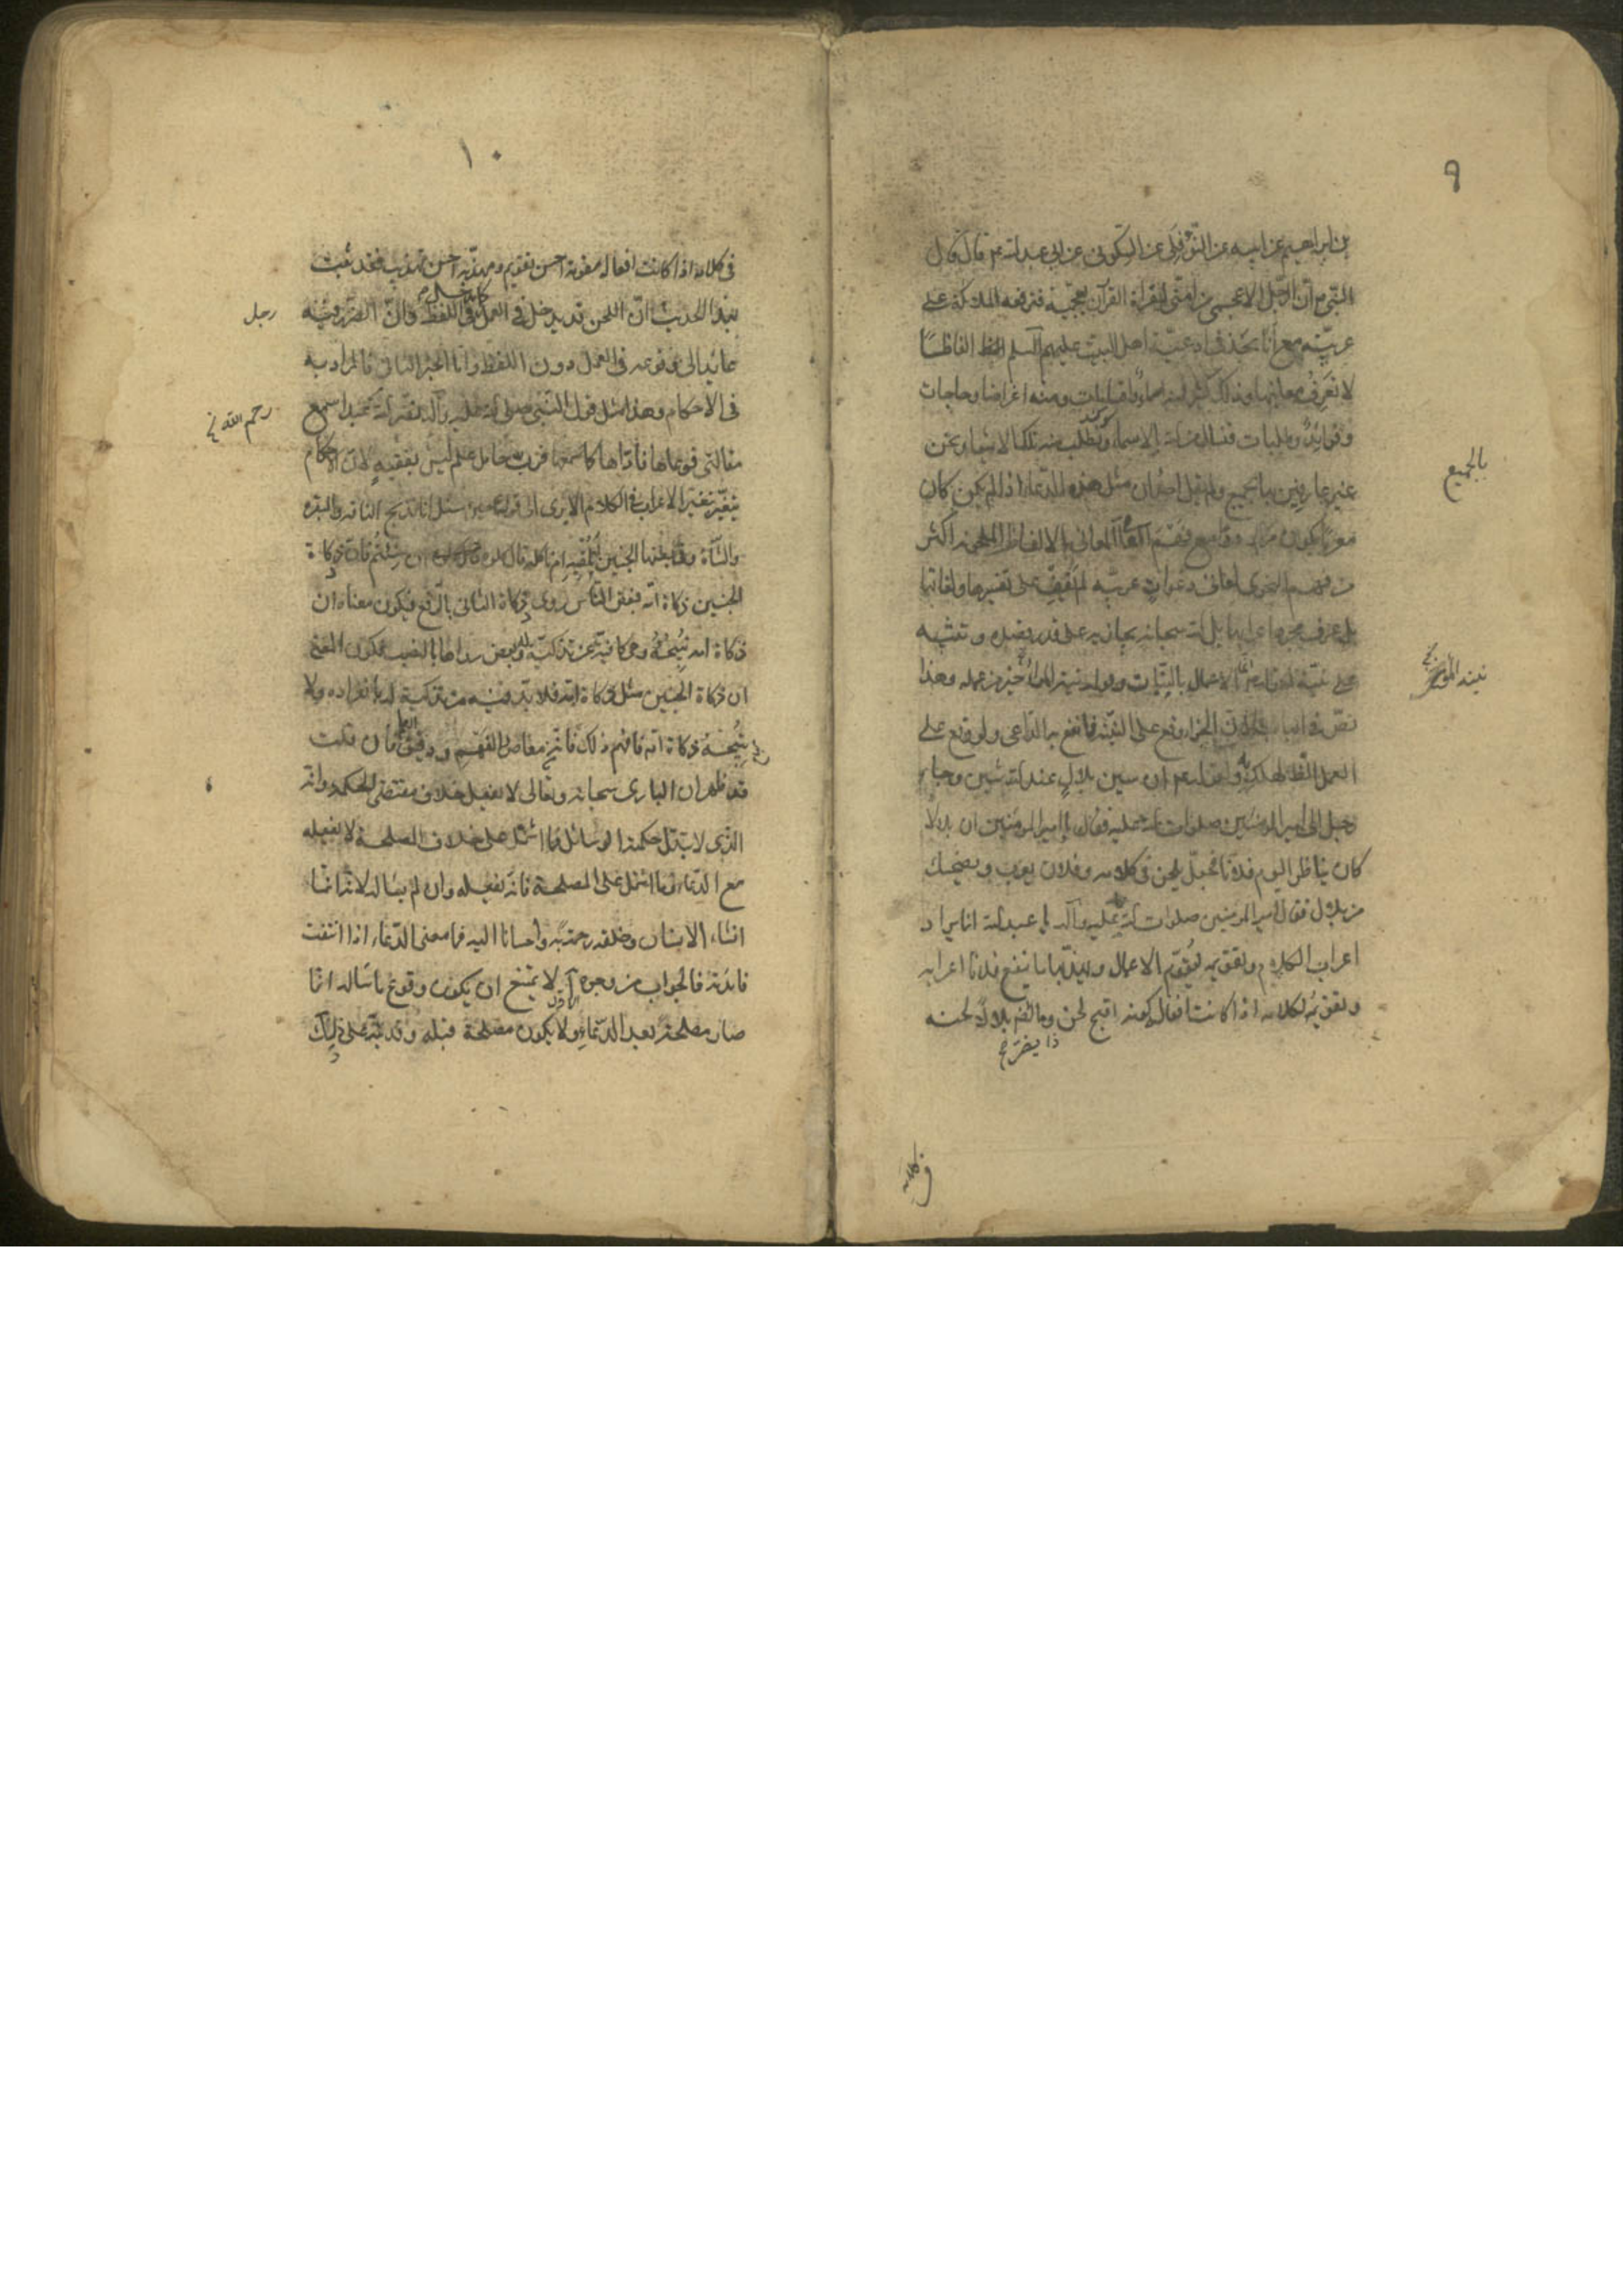 ٩
بن ابراهيم عن ابيه عن النوفلى عن السكونى عن ابى عبد الله ع قال قال
النبى ص ان الرجل الاعجمى من امتى ليقرأ القرآن بعجميته فترفعه الملائكة على
عربيته مع انا نجد فى ادعية اهل البيت عليهم السلم الفاظا
لا نعرف معانيها وذلك كثير فمنه اسماء و ومنه اغراضا وحاجات
وفوائد وطلبات فنسال الله بالاسماء ونطلب منه تلك الاشياء ونحن
غير عارفين بالجميع ولم يقل احد ان مثل هذه الدعاء اذا لم يكن
معربا يكون مردودا مع فهم العامى لمعانى الالفاظ الملحونة اكثر
من فهم النحوى لمعانى دعوات عربية لم يقف على تفسيرها ولغاتها
بل عرف مجرد اعرابها بل الله سبحانه يجازيه على قدر قصده ويثيبه
على نيته لقوله ع الاعمال بالنيات وقوله نية المرء خير من عمله وهذا
نص فى الباب لان الجزاء وقع على النية فانتفع به الداعى ولو وقع على
العمل لهلك وقوله ع ان سين بلال عند الله شين وجاء
رجل الى امير المؤمنين صلوات الله عليه فقال يا امير المؤمنين ان بلالا
كان يناظر اليوم فلانا فجعل يلحن فى كلامه وفلان يعرب ويضحك
من بلال فقال امير المؤمنين صلوات الله عليه وآله يا عبد الله انما يراد
اعراب الكلام وتقويمه ليقوم الاعمال ويهذبها ما ينفع فلانا اعرابه
وتقويمه لكلامه اذا كانت افعاله ملحونة اقبح لحن وما يضر بلالا لحنه
ذا يضر خ
بالجميع
نية المؤمن خ
فى كلامه
١٠
فى كلامه اذا كانت افعاله مقومة احسن تقويم ومهذبة احسن تهذيب فقد ثبت
بهذا الحديث ان اللحن قد يدخل فى العمل كما يدخل فى اللفظ وان الضرر فيه
عائد الى وقوعه فى العمل دون اللفظ واما الخبر الثانى فالمراد به
فى الاحكام وهذا مثل قول النبى صلى الله عليه وآله نضر الله عبدا سمع
مقالتى فوعاها فاداها كما سمعها فرب حامل علم ليس بفقيه لان الاحكام
تتغير بتغير الاعراب فى الكلام الا يرى الى قوله ع حين سئل انا نذبح الناقة والبقرة
والشاة وفى بطنها الجنين أنلقيه ام ناكله قال كلوه ان شئتم فان ذكاة
الجنين ذكاة امه فبعض الناس روى ذكاة الثانى بالرفع فيكون معناه ان
ذكاة امه تبيحه وهى كافية عن تذكيته وبعض رواها بالنصب فيكون المعنى
ان ذكاة الجنين مثل ذكاة امه فلا بد فيه من تذكية له بانفراده ولا
تبيحه ذكاة امه فافهم ذلك فانه من مغاص الفهم ودقيق العلم فان قلت
قد ظهر ان البارى سبحانه وتعالى لا يفعل خلاف مقتضى الحكمة وانه
الذى لا تبدل حكمته الوسائل فما اشتمل على خلاف المصلحة لا يفعله
مع الدعاء وما اشتمل على المصلحة فانه يفعله وان لم يسال لانه انما
انشاء الانسان وخلقه رحمة به واحسانا اليه فما معنى الدعاء اذا انتفت
فائدته فالجواب من وجوه الاول لا يمتنع ان يكون وقوع ما ساله انما
صار مصلحة بعد الدعاء ولا يكون مصلحة قبله وقد نبه على ذلك
رجل
رحم الله خ